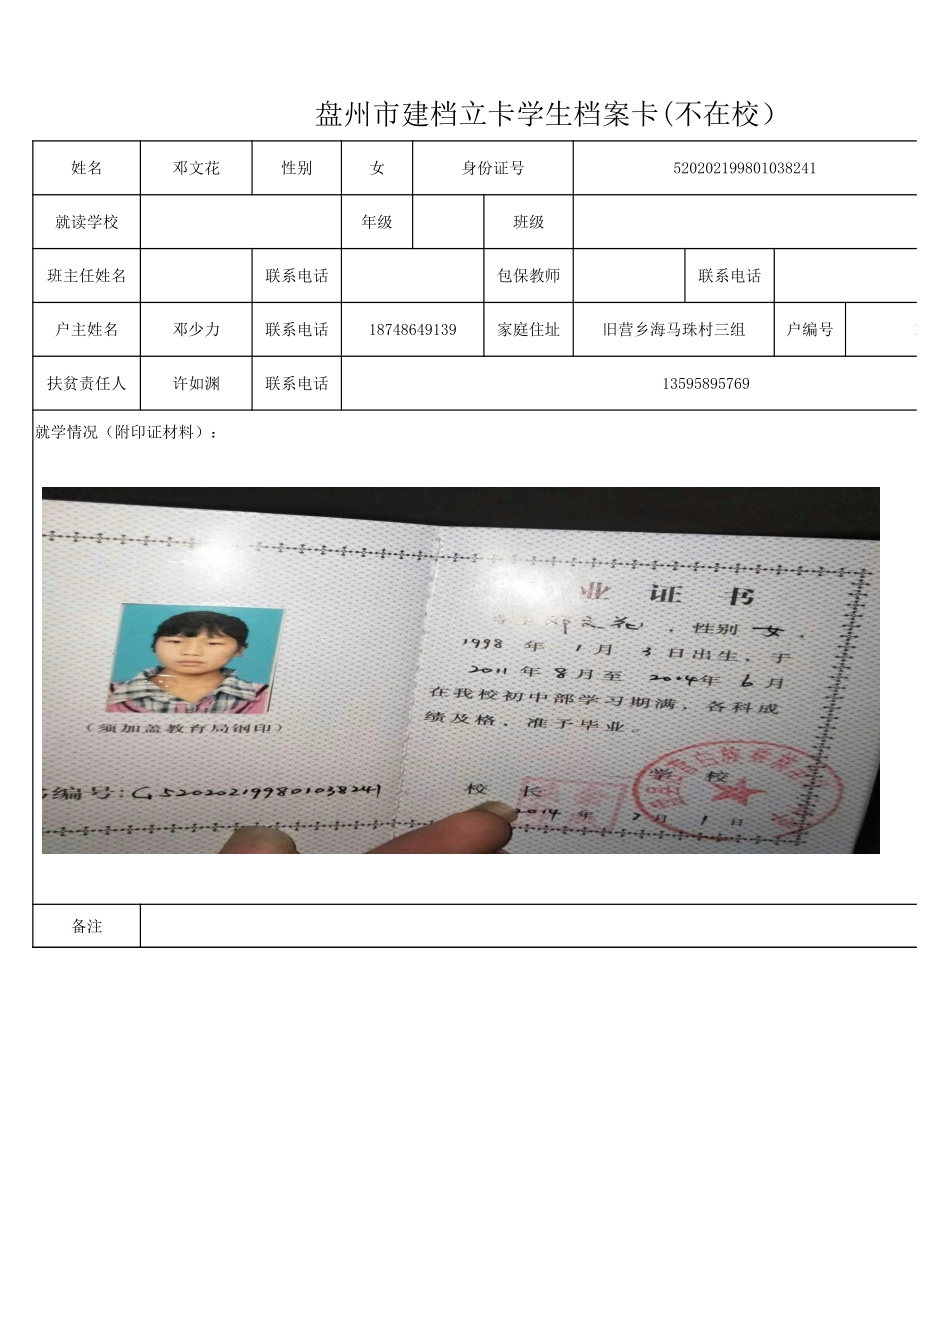 盘州市建档立卡学生档案卡(不在校）
姓名 邓文花 性别 女 身份证号 520202199801038241
就读学校 年级 班级
班主任姓名 联系电话 包保教师 联系电话
户主姓名 邓少力 联系电话 18748649139 家庭住址 旧营乡海马珠村三组 户编号
扶贫责任人 许如渊 联系电话 13595895769
就学情况（附印证材料）：
业 证 书
邓文花 ，性别 女 ，
1998 年 1 月 3 日出生，于
2011 年 8 月至 2014年 6 月
在我校初中部学习期满，各科成
绩及格，准予毕业。
（须加盖教育局钢印）
编号:G520202199801038241
学 校
校 长
2014 年 7 月 1 日
备注